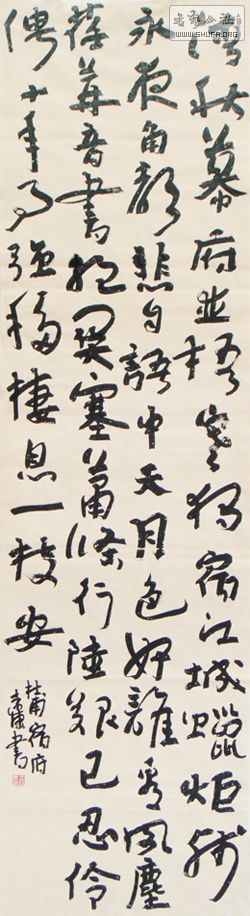 清秋幕府井梧寒獨宿江城蠟炬殘
永夜角聲悲自語中天月色好誰看風塵
荏苒音書絕關塞蕭條行路難已忍伶
俜十年事強移棲息一枝安
杜甫宿府
書
WWW.SHUFA.ORG